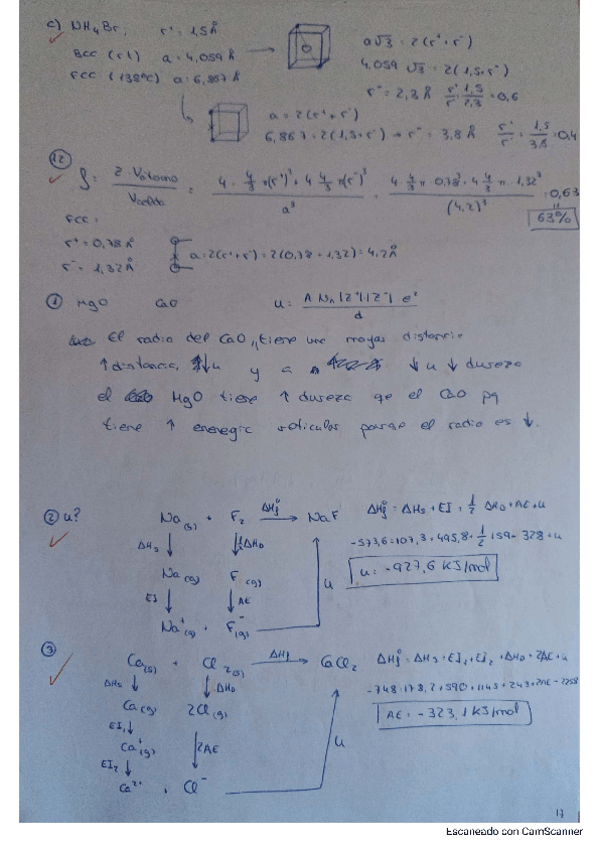 c) NH4Br: r+ = 1,5 Å
BCC (rt) a = 4,059 Å → a√3 = 2(r+ + r-)
4,059 √3 = 2(1,5 + r-)
FCC (138ºC) a: 6,867 Å
r- = 2,3 Å r+/r- = 1,5/2,3 = 0,6
a = 2(r+ + r-)
6,867 = 2(1,5 + r-) → r- = 3,8 Å r+/r- = 1,5/3,8 = 0,4
12
ρ = Z · Vátomo / Vcelda = 4 · 4/3 π(r+)³ + 4 4/3 π(r-)³ / a³ = 4 · 4/3 π 0,78³ + 4 4/3 π · 1,32³ / (4,2)³ = 0,63
63%
FCC:
r+ = 0,78 Å
r- = 1,32 Å
a = 2(r+ + r-) = 2(0,78 + 1,32) = 4,2 Å
1 MgO CaO u = A NA |Z+| |Z-| e² / d
El radio del CaO, tiene una mayor distancia
↑ distancia, ↓ u y a ↓ u ↓ dureza
el MgO tiene ↑ dureza qe el CaO pq
tiene ↑ energía reticular porqe el radio es ↓.
2 u? Na(s) + F2 ΔHfº → NaF ΔHfº = ΔHs + EI + 1/2 ΔHD + AE + u
ΔHs ↓ ↓ 1/2 ΔHD -573,6 = 107,3 + 495,8 + 1/2 159 - 328 + u
Na(g) F(g) u = -927,6 KJ/mol
EI ↓ ↓ AE u
Na+(g) + F-(g)
3
Ca(s) + Cl2(s) ΔHf → CaCl2 ΔHfº = ΔHs + EI1 + EI2 + ΔHD + 2AE + u
ΔHs ↓ ↓ ΔHD -748 = 178,2 + 590 + 1145 + 243 + 2AE - 2258
Ca(g) 2Cl(g) AE = -323,1 KJ/mol
EI1 ↓ u
Ca+(g) ↓ 2AE
EI2 ↓
Ca2+ + Cl-
17
Escaneado con CamScanner